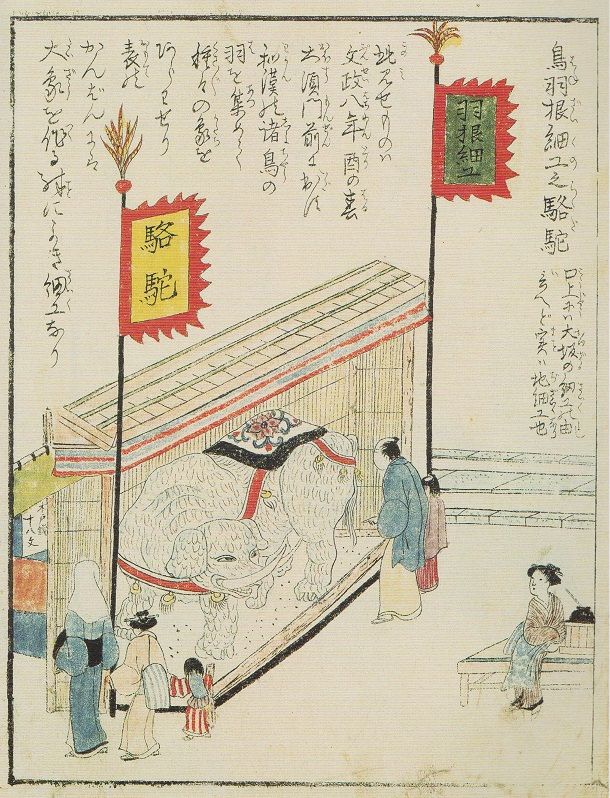 鳥羽根細工之駱駝
口上ニハ大坂の細工の由
いへど実ハ地細工也
羽根細工
此見せものハ
文政八年酉の春
大須門前に出ス
和漢の諸鳥の
羽を集めて
種々の象を
あらハせり
表の
かんばんにハ
大象を作る殊によき細工なり
駱駝
木戸銭
十六文